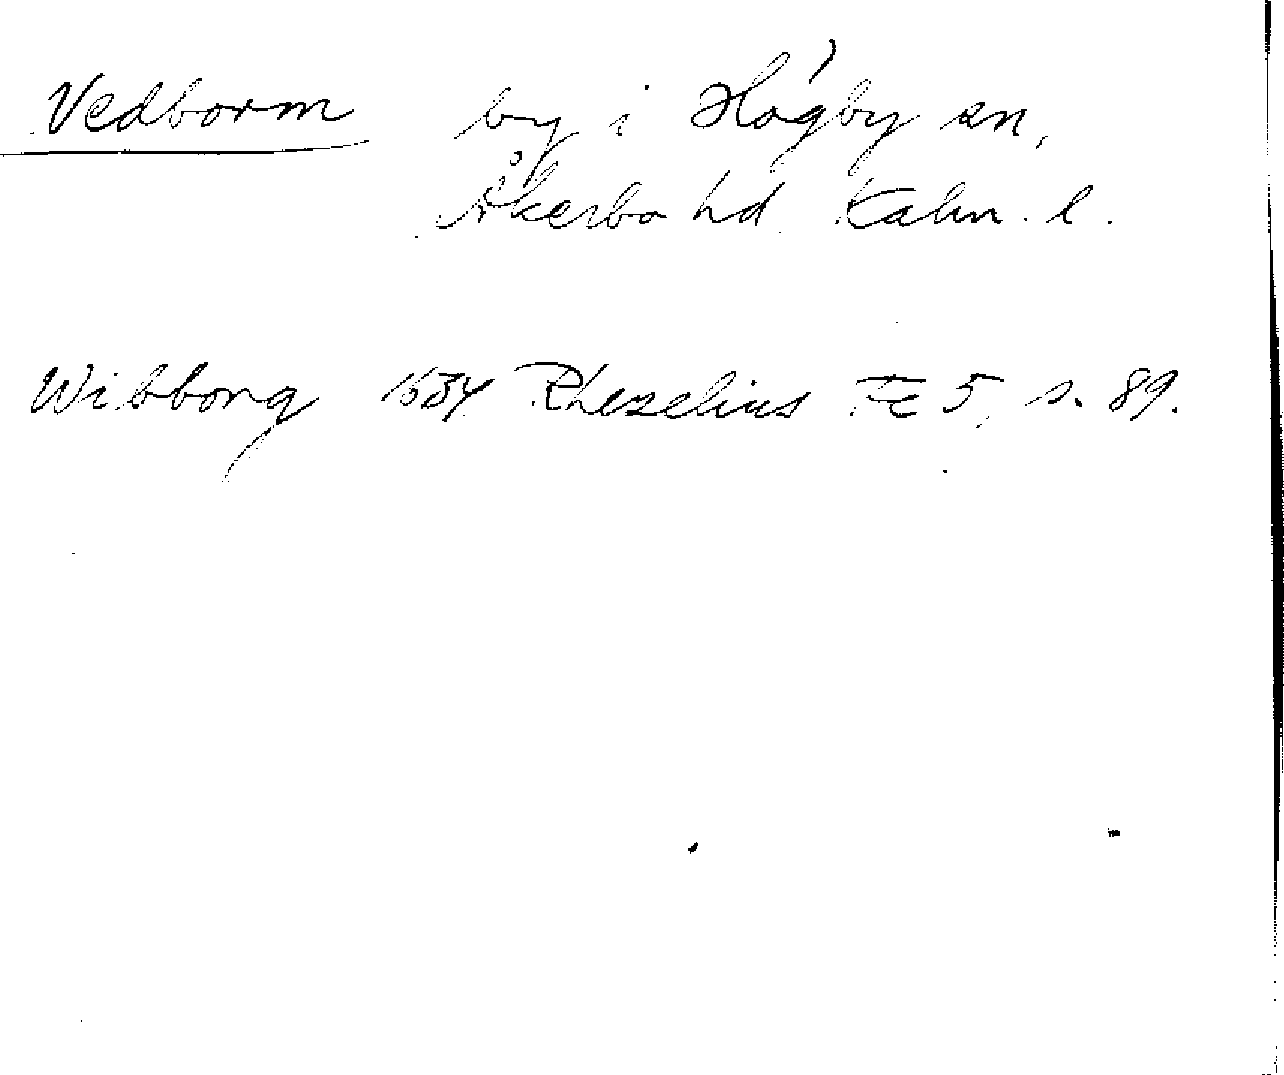 Vedborm by i Högby sn,
Åkerbo hd Kalm. l.
Wibborg 1634 Rhezelius Fc 5, s. 89.